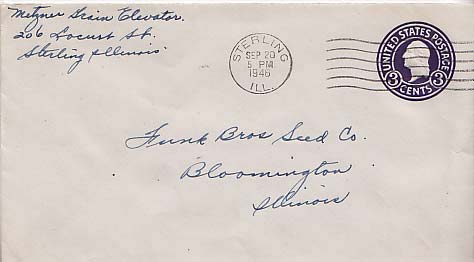 Metzner Grain Elevator.
206 Locust St.
Sterling Illinois.
STERLING
SEP 20
5 PM
1946
ILL.
UNITED STATES POSTAGE
3 CENTS 3
Funk Bros Seed Co.
Bloomington
Illinois